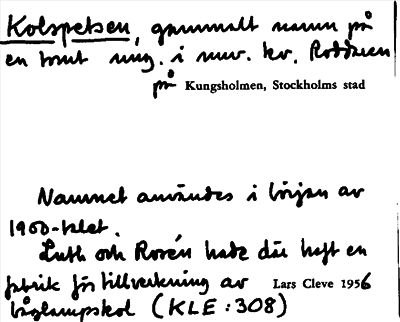 Kolspetsen, gammalt namn på
en tomt ung. i nuv. kv. Roddaren
på Kungsholmen, Stockholms stad
Namnet användes i början av
1900-talet.
Luth och Rosén hade där haft en
fabrik för tillverkning av Lars Cleve 1956
båglampskol (KLE:308)